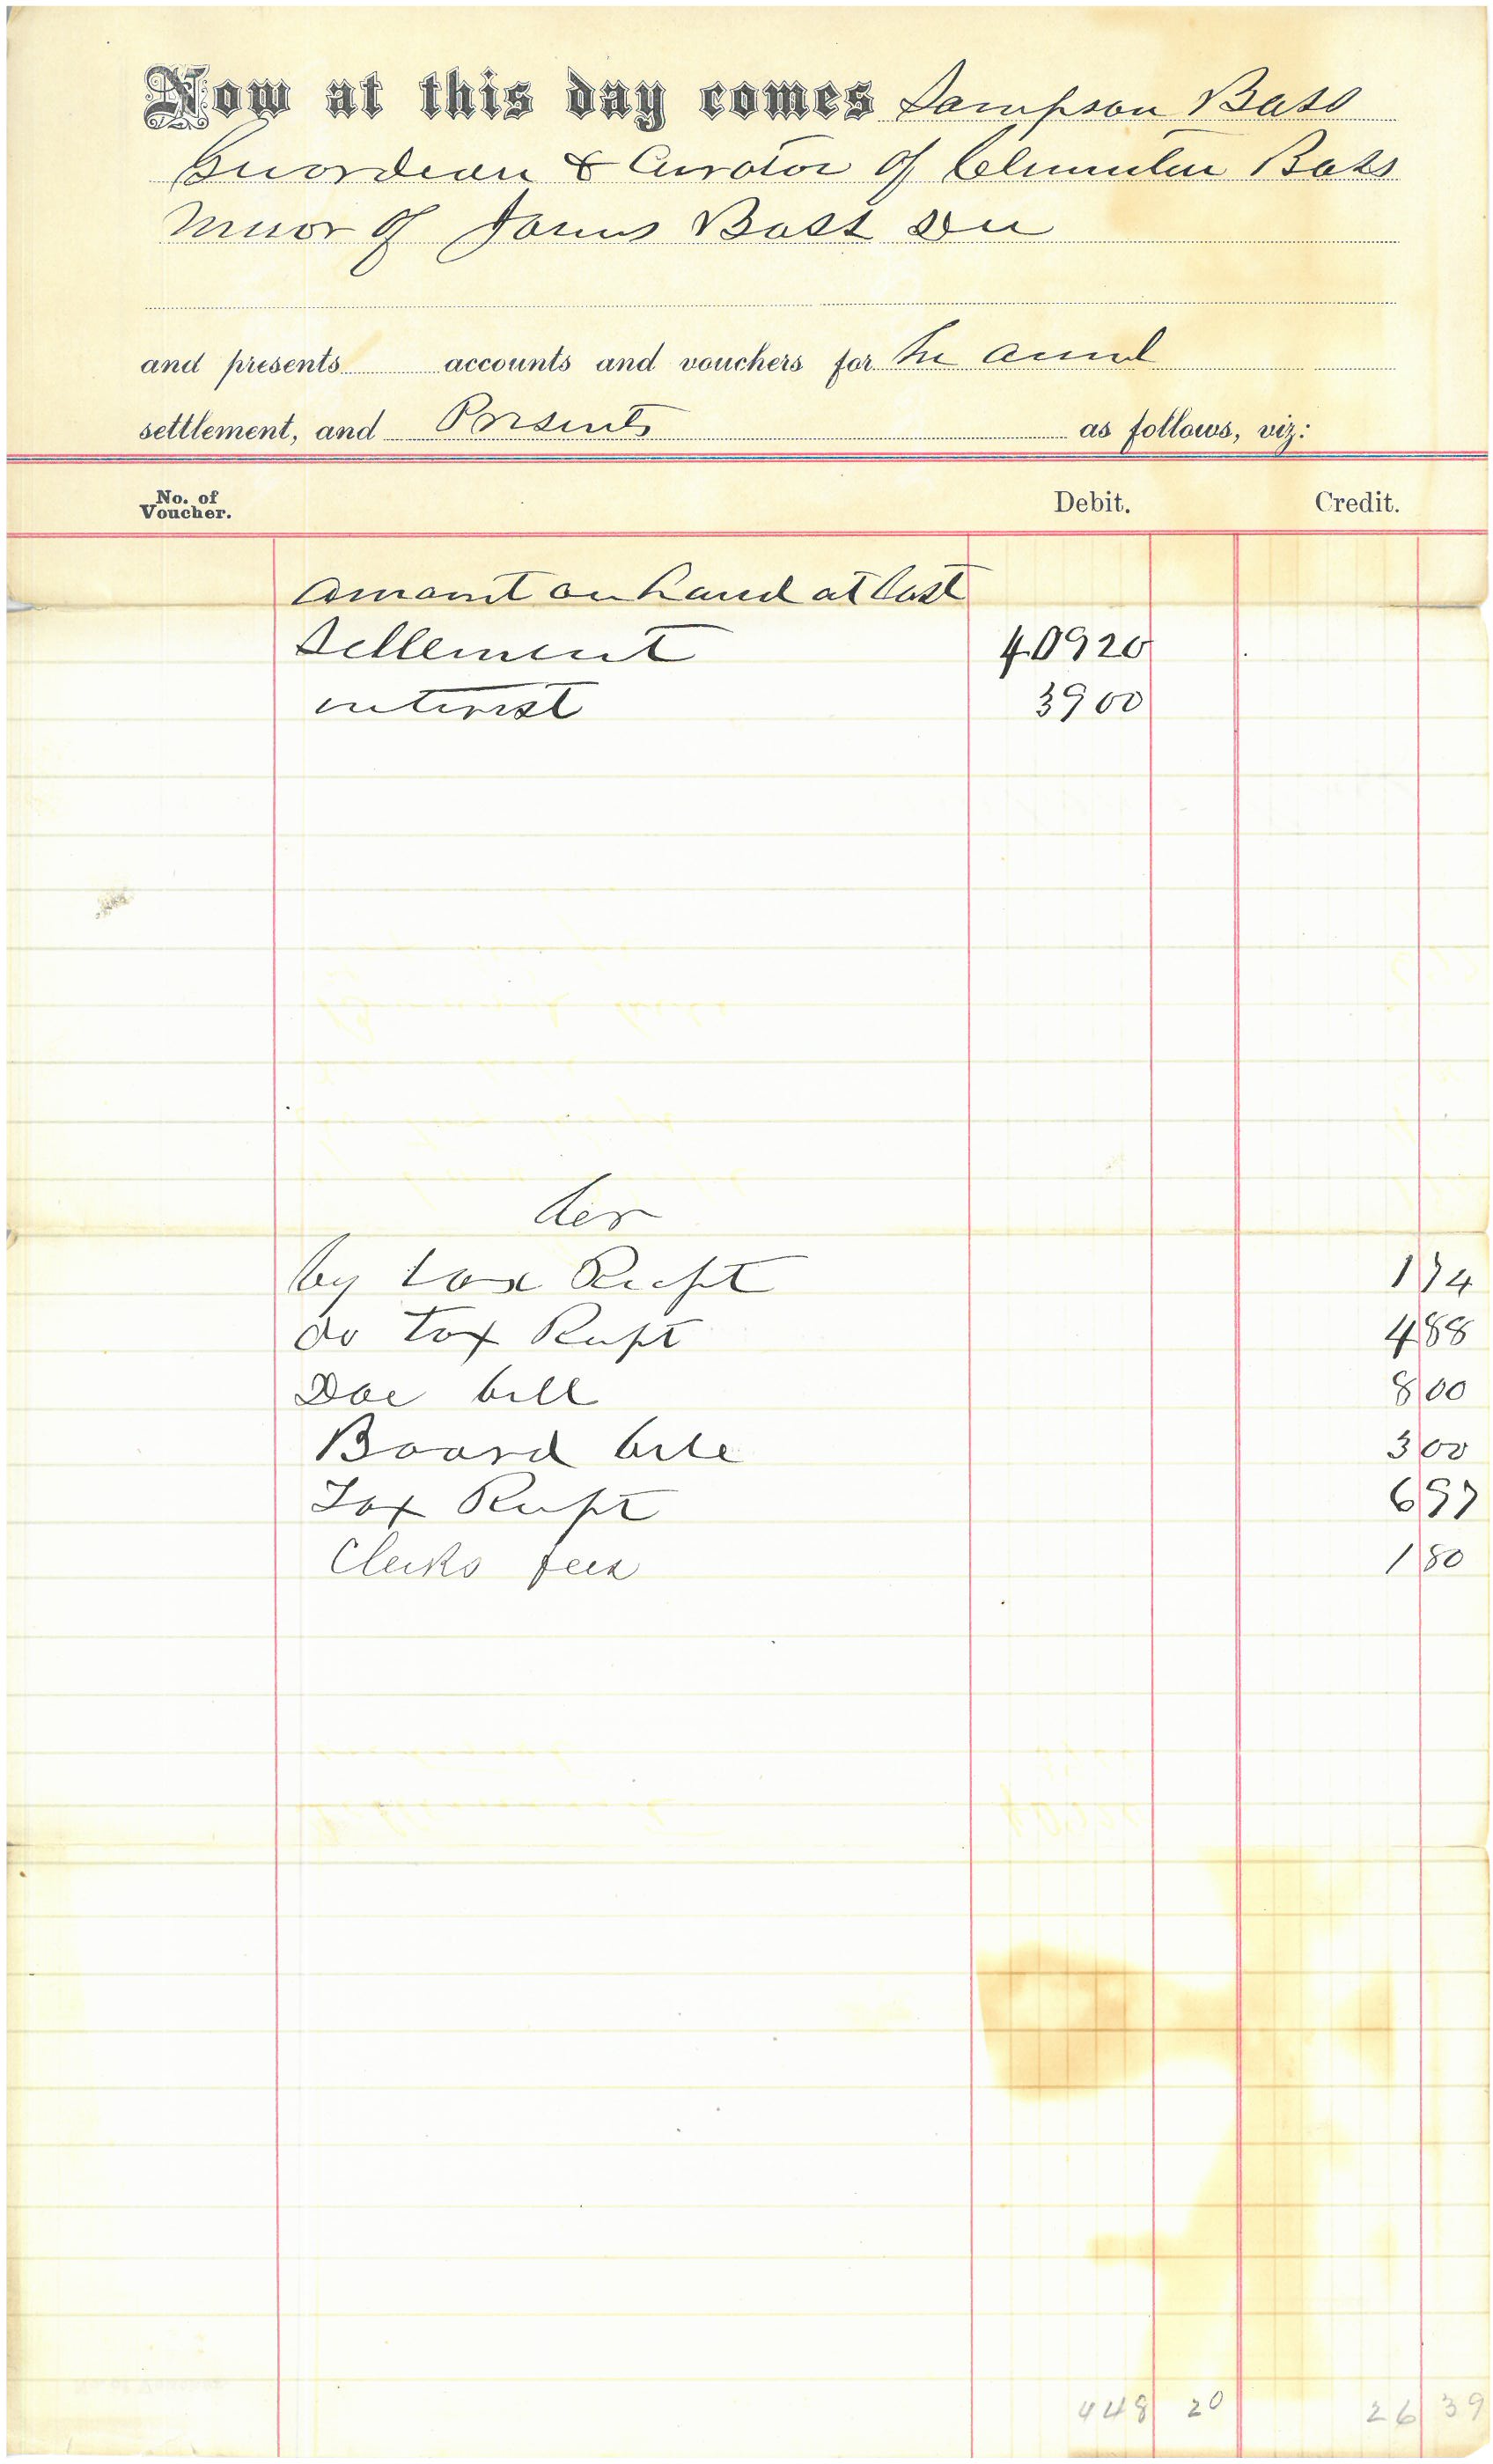 Now at this day comes Sampson Bass
Guardian & Curator of Clementine Bass
Minor of James Bass Den
and presents accounts and vouchers for his annul
settlement, and Presents as follows, viz:
No. of Voucher. Debit. Credit.
amount on hand at last
Settlement 409 20
interest 39 00
Cr
by tax Recpt 1 74
do Tax Recpt 4 88
Doc bill 8 00
Board bill 3 00
Tax Recpt 6 97
Clerks fees 1 80
448 20 26 39